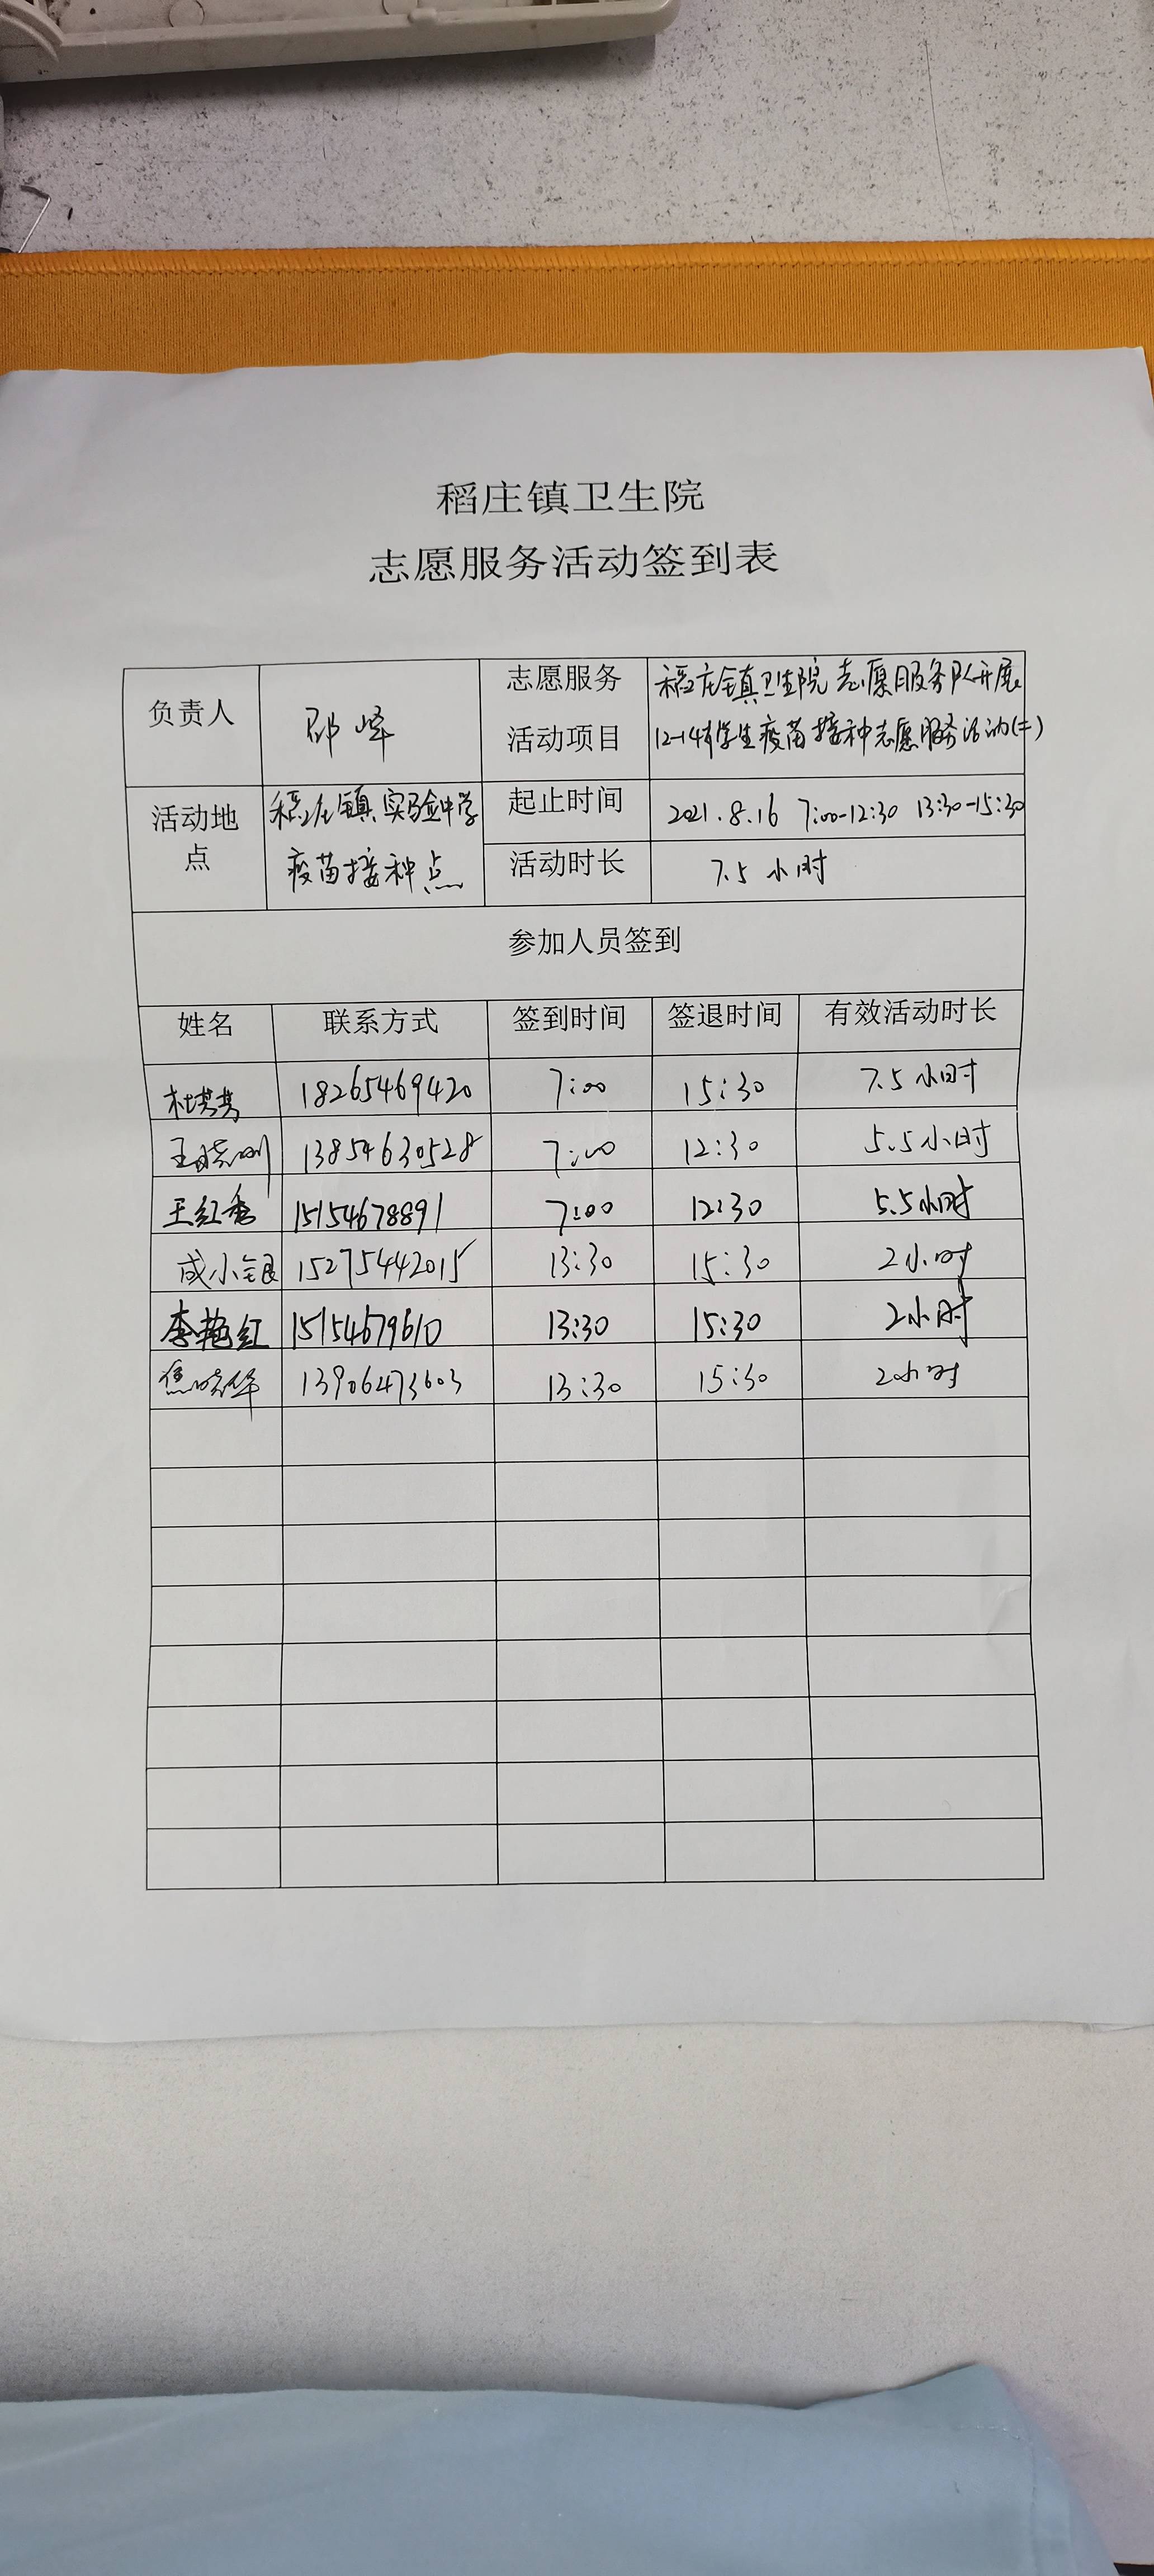 稻庄镇卫生院
志愿服务活动签到表
负责人
邵峰
志愿服务
活动项目
稻庄镇卫生院志愿服务队开展
12-14岁学生疫苗接种志愿服务活动(十)
活动地
点
稻庄镇实验中学
疫苗接种点
起止时间
2021.8.16 7:00-12:30 13:30-15:30
活动时长
7.5小时
参加人员签到
姓名 联系方式 签到时间 签退时间 有效活动时长
18265469420 7:00 15:30 7.5小时
王晓刚 13854630528 7:00 12:30 5.5小时
王红秀 15154678891 7:00 12:30 5.5小时
成小银 15275442015 13:30 15:30 2小时
李艳红 15154679610 13:30 15:30 2小时
焦晓华 13906473603 13:30 15:30 2小时